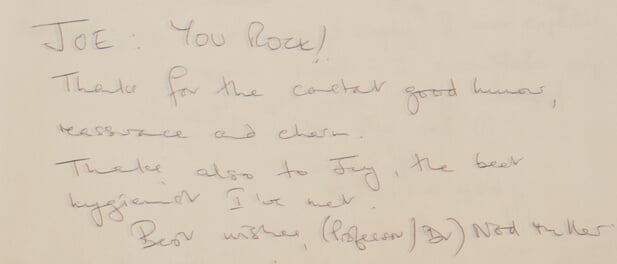 JOE: YOU ROCK!
Thanks for the constant good humor,
reassurance and charm.
Thanks also to Jay, the best
hygienist I've met.
Best wishes, (Professor/Dr)